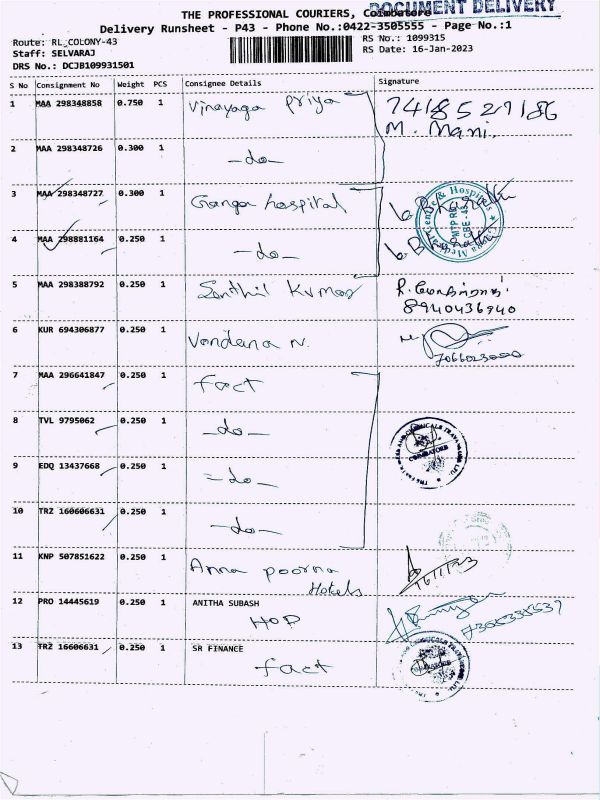 DOCUMENT DELIVERY
THE PROFESSIONAL COURIERS, Coimbatore
Delivery Runsheet - P43 - Phone No.:0422-3505555 - Page No.:1
Route: RL_COLONY-43
RS No.: 1099315
Staff: SELVARAJ
RS Date: 16-Jan-2023
DRS No.: DCJB109931501
S No Consignment No Weight PCS Consignee Details Signature
1 MAA 298348858 0.750 1 Vinayaga Priya 7418529186
M. Mani.
2 MAA 298348726 0.300 1 -do-
3 MAA 298348727 0.300 1 Ganga hospital
4 MAA 298881164 0.250 1 -do-
5 MAA 298388792 0.250 1 Senthil Kumar
8940436940
6 KUR 694306877 0.250 1 Vandana N.
7 MAA 296641847 0.250 1 fact
8 TVL 9795062 0.250 1 -do-
COIMBATORE
9 EDQ 13437668 0.250 1 -do-
10 TRZ 160606631 0.250 1 -do-
11 KNP 507851622 0.250 1 Anna poorna
Hotels
16/1/23
12 PRO 14445619 0.250 1 ANITHA SUBASH
HOP
7305335537
13 TRZ 16606631 0.250 1 SR FINANCE
fact